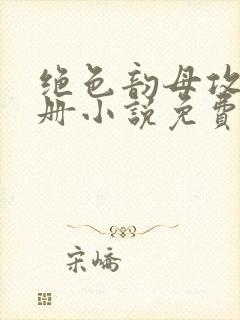 绝色韵母攻
册小说免费
宋峤